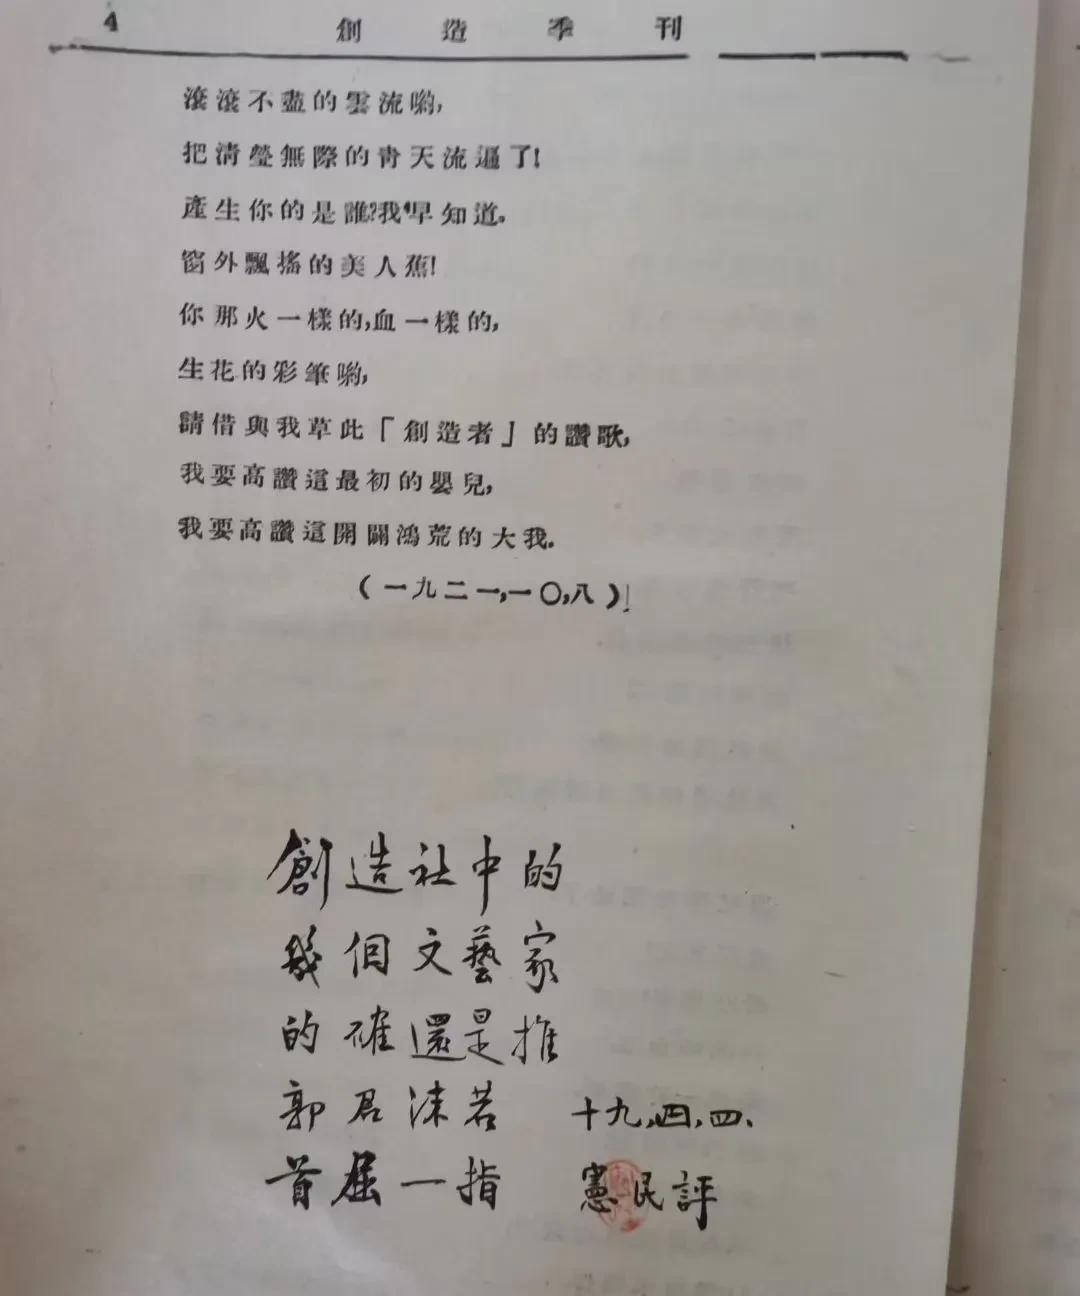 4 創造季刊
滾滾不盡的雲流喲,
把淸瑩無際的靑天流遍了!
產生你的是誰?我早知道,
窗外飄搖的美人蕉!
你那火一樣的,血一樣的,
生花的彩筆喲,
請借與我草此「創造者」的讚歌,
我要高讚這最初的嬰兒,
我要高讚這開闢鴻荒的大我.
(一九二一,一〇,八)
創造社中的
幾個文藝家
的確還是推
郭君沫若 十九,四,四、
首屈一指 憲民評